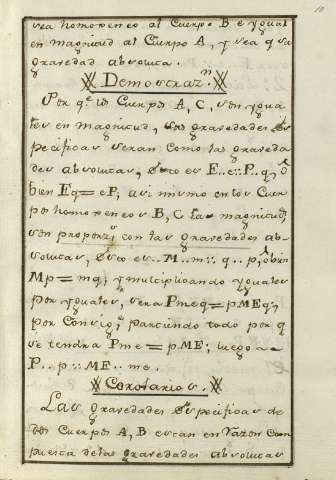 10
sea homogeneo al Cuerpo B e ygual
en magnitud al Cuerpo A, y sea q su
gravedad absoluta.
Demostraz.n
Por q.e los Cuerpos A, C, son ygua
les en magnitud, sus gravedades Es
pecificas seran como las graveda
des absolutas, Esto es E..e::P..q, ó
bien Eq=eP, asi mismo en los Cuer
pos homogeneos B, C las magnitud.s
son proporz.s con las gravedades ab-
solutas, Esto es.. M..m:: q..p, ó bien
Mp=mq; y multiplicando yguales
por yguales, sera Pmeq=pMEq;
por Consig.te partiendo todo por q
se tendra Pme=pME; luego
P..p::ME..me.
Corolarios.
Las gravedades Especificas de
los Cuerpos A, B estan en razon Com
puesta de las gravedades absolutas